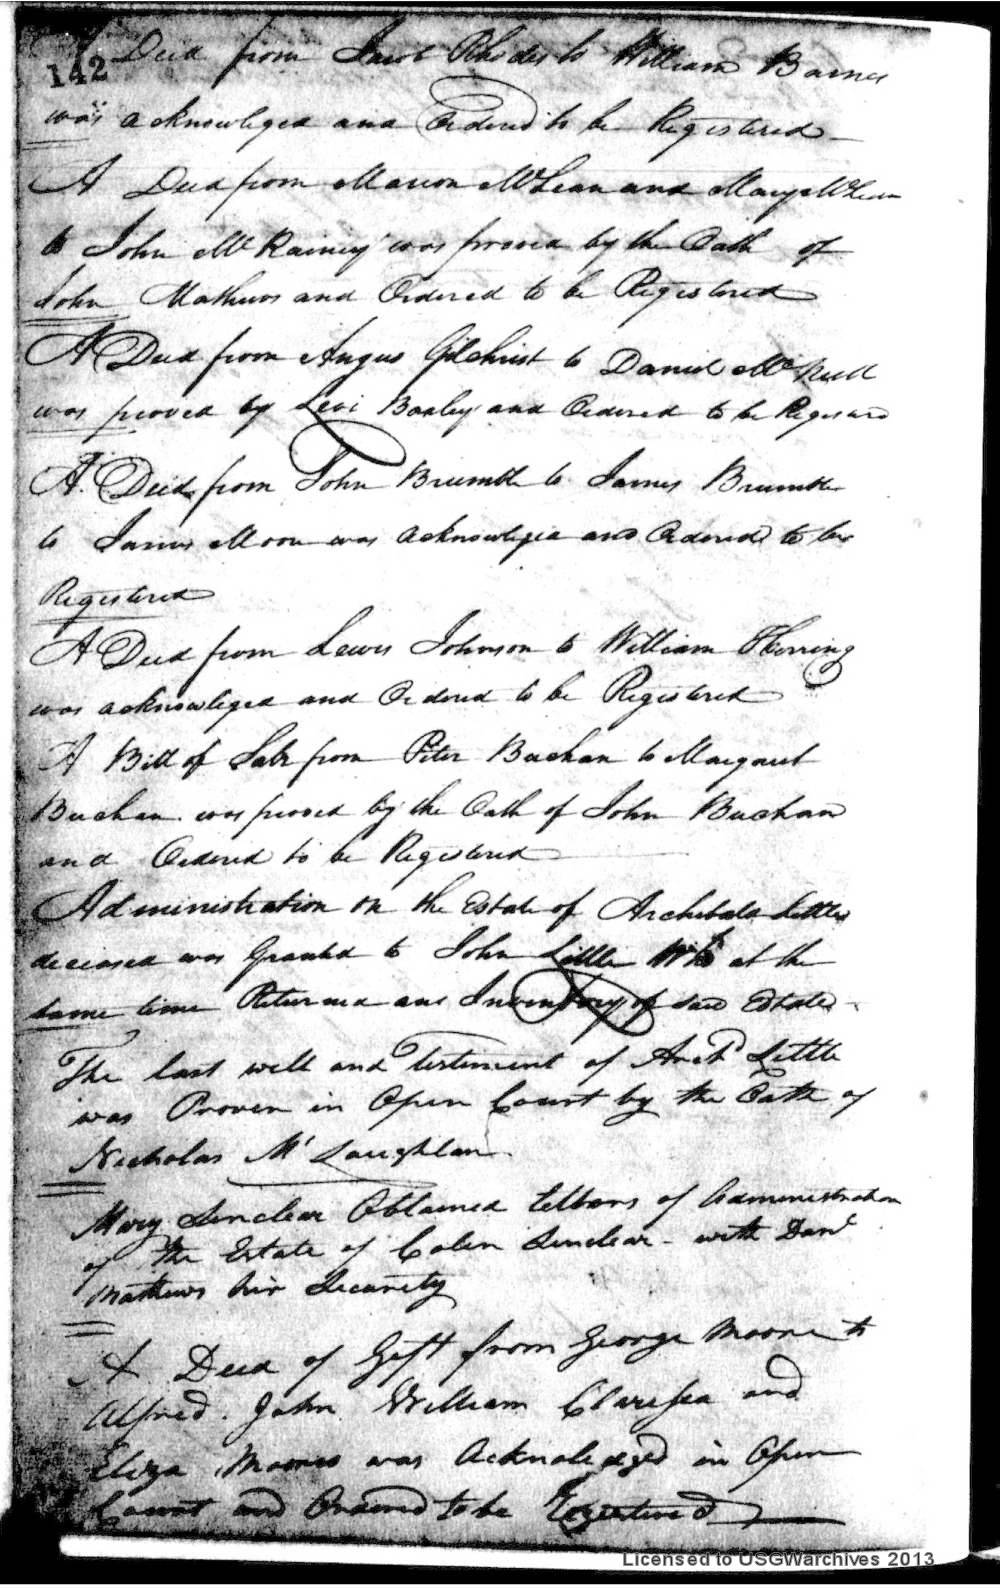 142
A Deed from Jacob Rhodes to William Barnes
was acknowleged and Ordered to be Registered
A Deed from Marion McLean and Mary McLean
to John McRainey was proved by the Oath of
John Mathews and Ordered to be Registered
A Deed from Angus Gilchrist to Daniel McNeill
was proved by Levi and Ordered to be
A Deed from John Brumble to James Brumble
to James Moon was acknowlegea and Ordered to be
Registered
A Deed from Lewis Johnson to William Herring
was acknowleged and Ordered to be Registered
A Bill of Sale from Peter Buchan to Margaret
Buchan was proved by the Oath of John Buchan
and Ordered to be Registered
Administration on the Estate of Archibald Little
deceased was Granted to John Little who at the
same time Returned an Inventory of said Estate
The last will and Testiment of Archd Little
was Proven in Open Court by the Oath of
Nicholas Mc Laughlan
Mary Sinclear Obtained letters of Administration
of the Estate of Colen Sinclear - with Danl
Mathews hir Security
A Deed of Gift from George Moore to
Alfred John William Claressa and
Eliza Moores was Acknoledged in Open
Court and Ordered to be Registered
Licensed to USGWarchives 2013